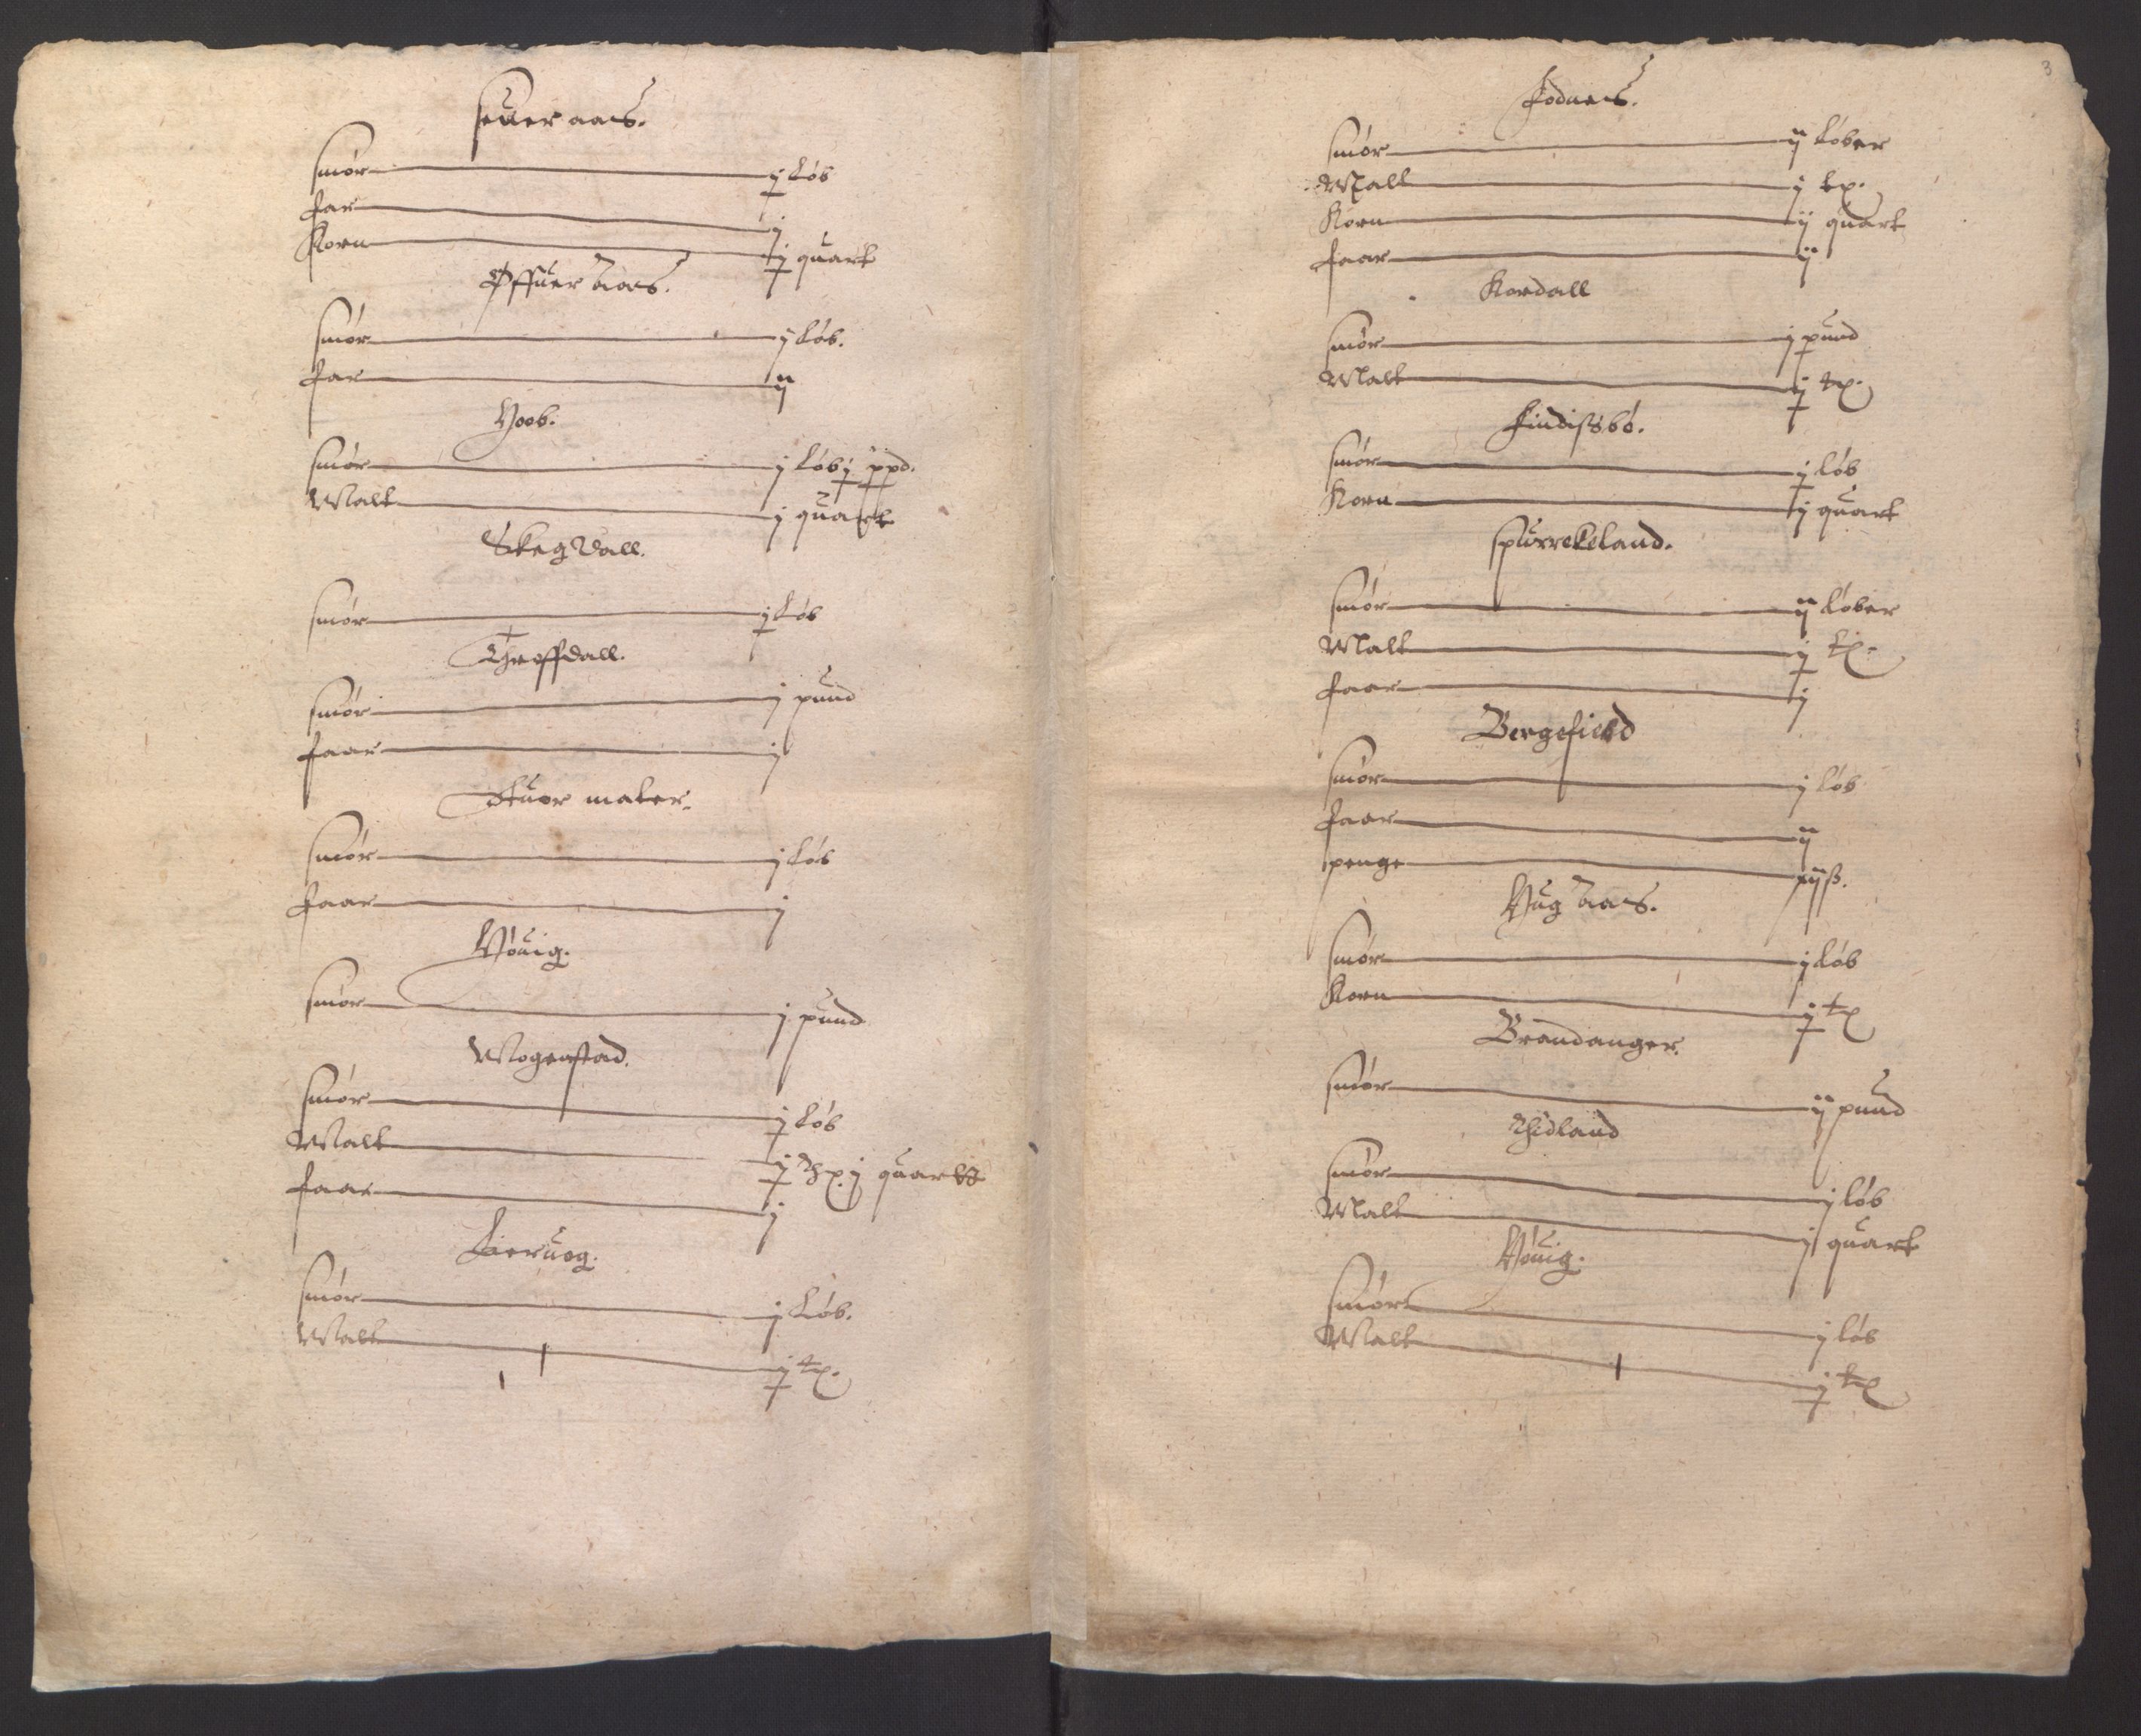 Seüer aas.
Smör j Löb
Far j
Korn j quart
Offüer Aas.
Smör j Löb.
Far ij
Hoob.
Smör j Löb j ppd.
Malt j quart
Skagdall.
Smör j Löb
Threffdall.
Smör j pund
Faar j
Stuor mater.
Smör j Löb
Faar j
Höuig.
Smör j pund
Mogenstad.
Smör j Löb
Malt j Tp. j quarts
Faar j
Leeruog.
Smör j Löb.
Malt j tp.
3
Fodnes.
Smör ij Löber
Malt j tp.
Korn ij quart
Faar ij
Kordall
Smör j pund
Malt j tp.
Findissbö.
Smör j löb
Korn j quart
Spürrekeland.
Smör ij Löber
Malt j tp.
Faar j
Bergefield
Smör j löb
Faar ij
penge xij ß.
Hüg aas.
Smör j Löb
Korn j tp
Brandanger.
Smör ij pund
Thidland
Smör j löb
Malt j quart
Höuig.
Smör j löb
Malt j tp